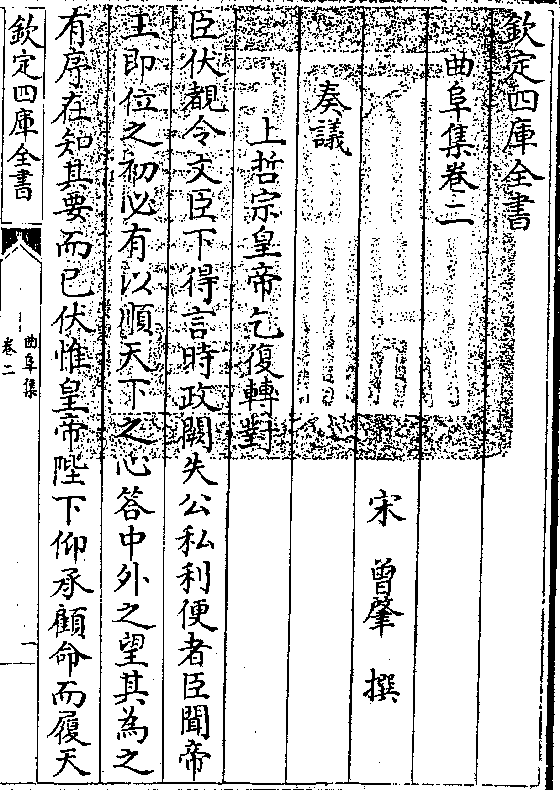 欽定四庫全書
曲阜集卷二
宋　曾肇　撰
奏議
上哲宗皇帝乞復轉對
臣伏覩令文臣下得言時政闕失公私利便者臣聞帝
王即位之初必有以順天下之心答中外之望其為之
有序在知其要而已伏惟皇帝陛下仰承顧命而履天
欽定四庫全書
曲阜集
卷二
一